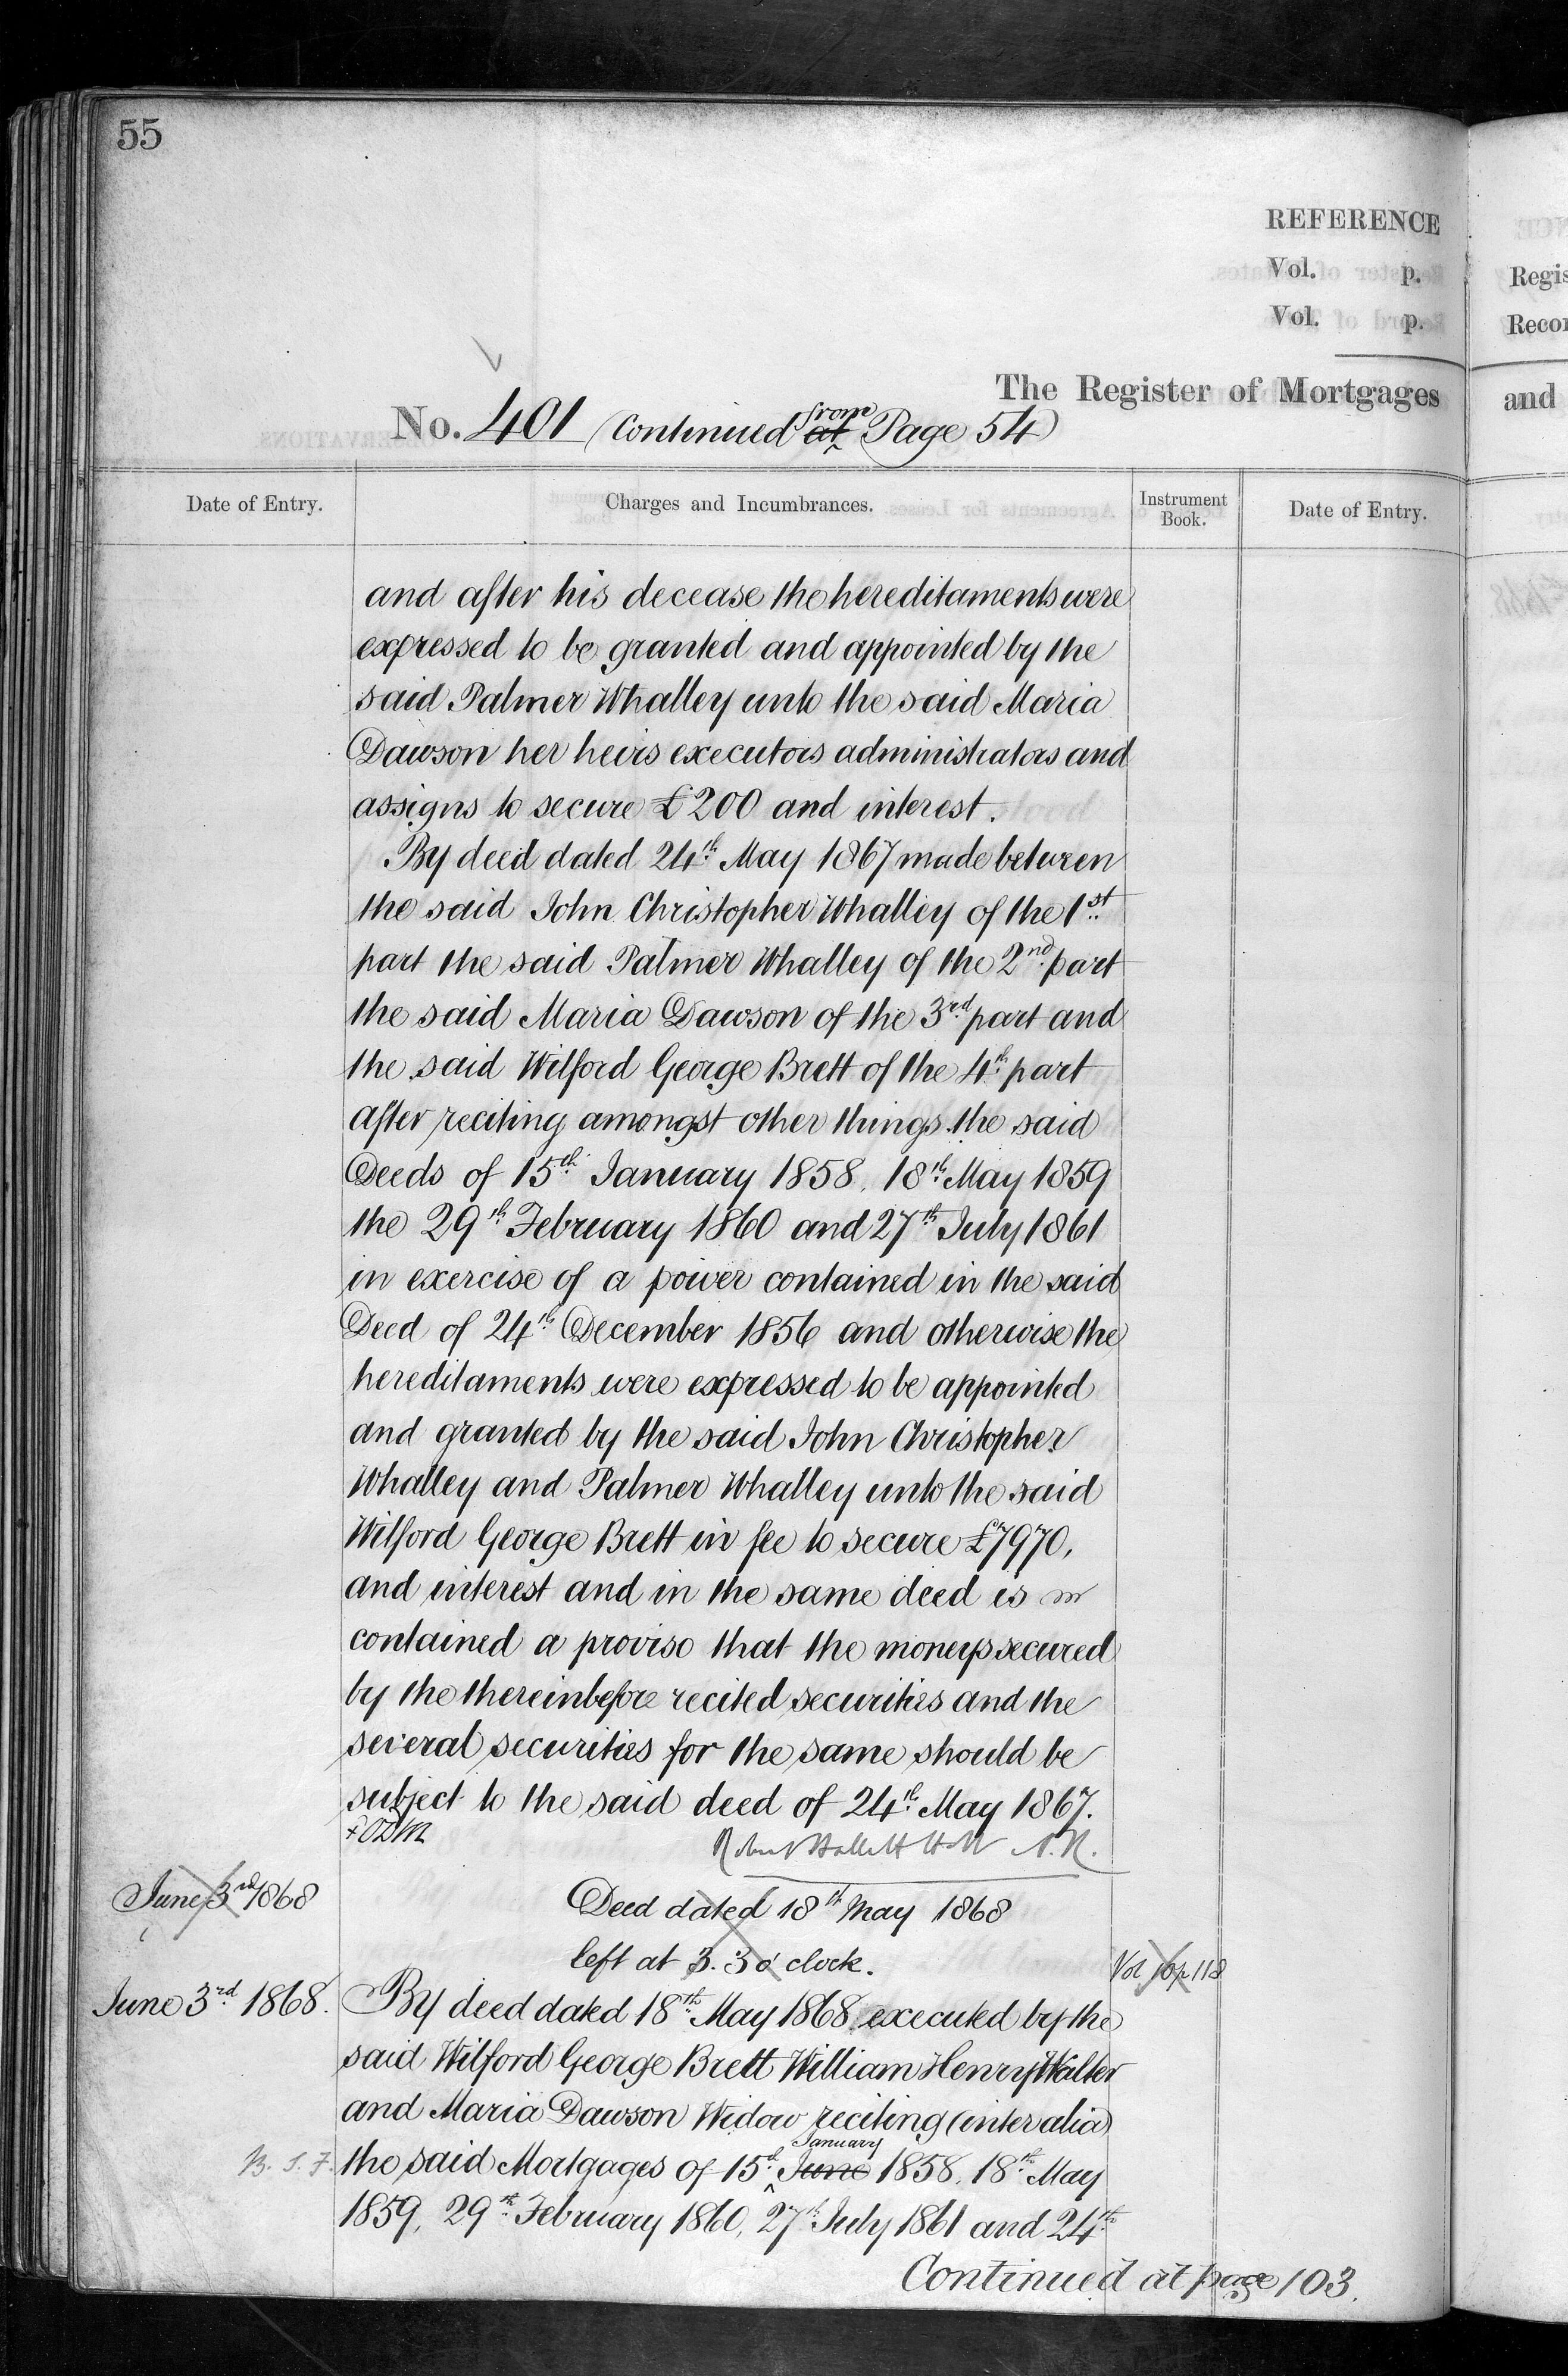 55
REFERENCE
Vol. p.
Vol. p.
The Register of Mortgages
No. 401 (Continued at from Page 54)
Date of Entry. Charges and Incumbrances. Instrument Book. Date of Entry.
and after his decease the hereditaments were
expressed to be granted and appointed by the
said Palmer Whalley unto the said Maria
Dawson her heirs executors administrators and
assigns to secure £200 and interest.
By deed dated 24th May 1867 made between
the said John Christopher Whalley of the 1st
part the said Palmer Whalley of the 2nd part
the said Maria Dawson of the 3rd part and
the said Wilford George Brett of the 4th part
after reciting amongst other things the said
Deeds of 15th January 1858, 18th May 1859
the 29th February 1860 and 27th July 1861
in exercise of a power contained in the said
Deed of 24th December 1856 and otherwise the
hereditaments were expressed to be appointed
and granted by the said John Christopher
Whalley and Palmer Whalley unto the said
Wilford George Brett in fee to secure £7970,
and interest and in the same deed is
contained a proviso that the moneys secured
by the thereinbefore recited securities and the
several securities for the same should be
subject to the said deed of 24th May 1867.
Robert Hallett Holt A.R.
June 3rd 1868 Deed dated 18th May 1868
left at 3.30 clock.
Vol 10 p 118
June 3rd 1868. By deed dated 18th May 1868 executed by the
said Wilford George Brett William Henry Walter
and Maria Dawson Widow reciting (inter alia)
B. S. F. the said Mortgages of 15th June January 1858, 18th May
1859, 29th February 1860, 27th July 1861 and 24th
Continued at page 103.
Regis
Recor
and